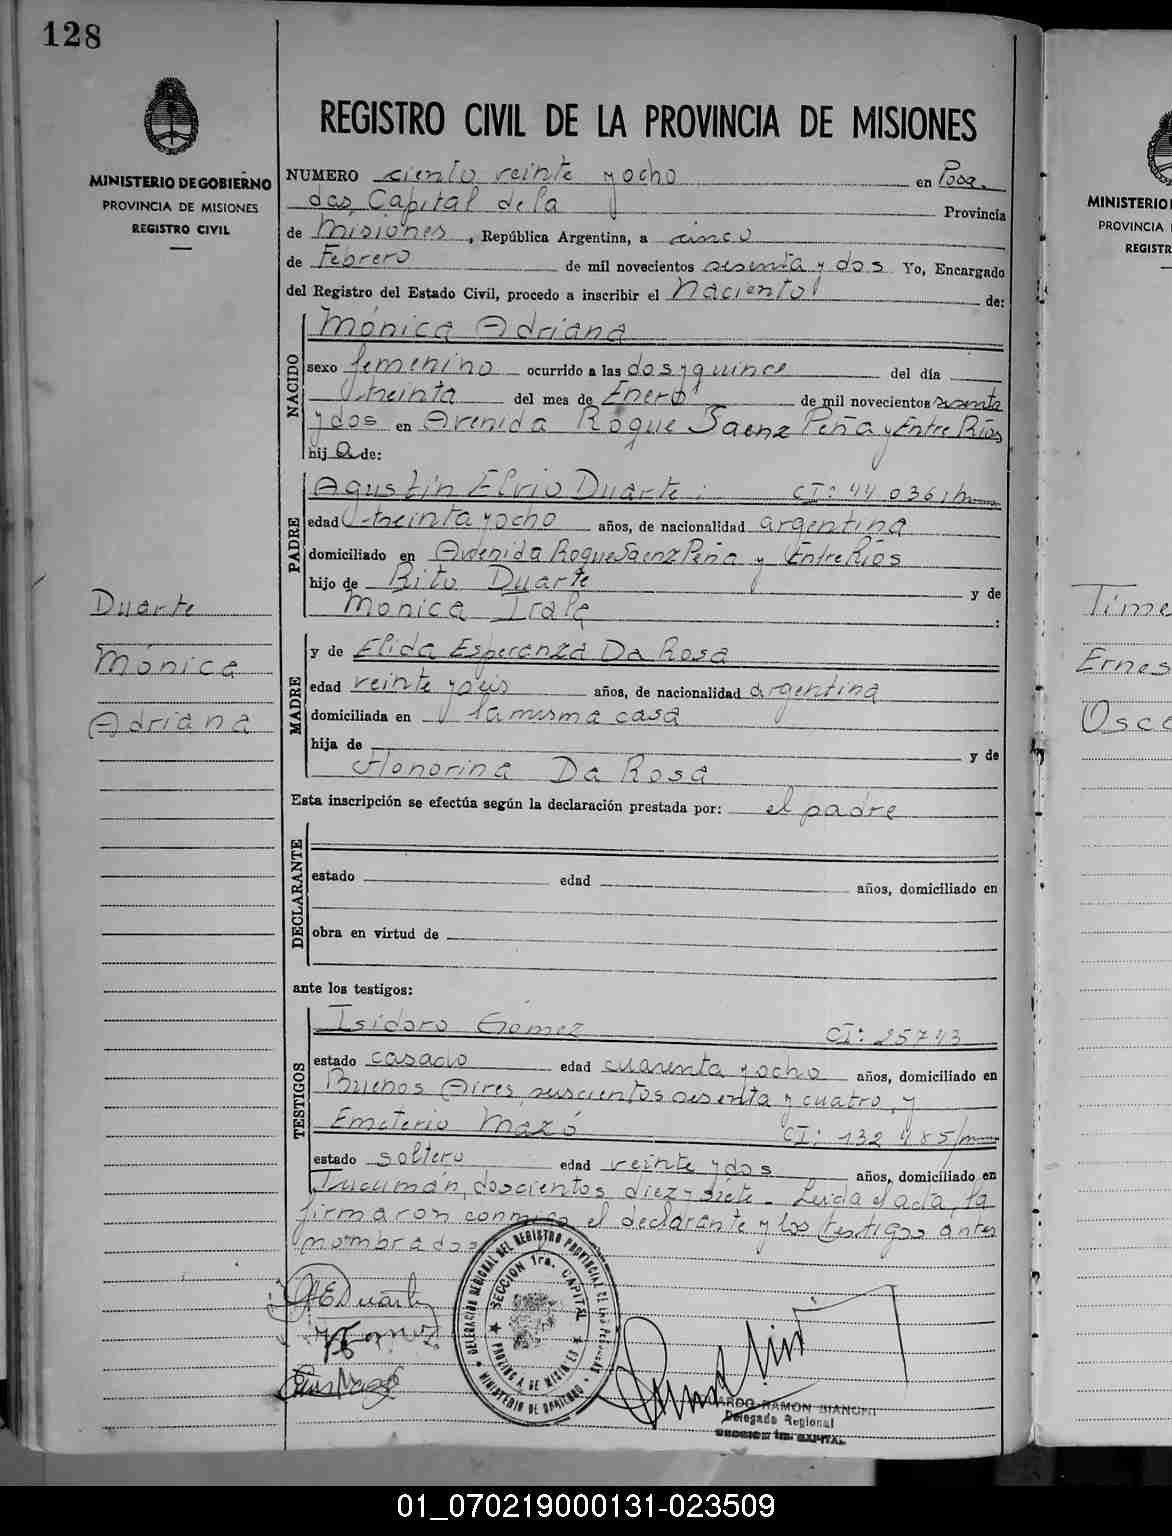 128
MINISTERIO DE GOBIERNO
PROVINCIA DE MISIONES
REGISTRO CIVIL
Duarte
Mónica
Adriana
REGISTRO CIVIL DE LA PROVINCIA DE MISIONES
NUMERO ciento veinte y ocho en Posa-
das, Capital de la Provincia
de Misiones, República Argentina, a cinco
de Febrero de mil novecientos sesenta y dos Yo, Encargado
del Registro del Estado Civil, procedo a inscribir el Naciento de:
NACIDO
Mónica Adriana
sexo femenino ocurrido a las dos y quince del día
treinta del mes de Enero de mil novecientos sesenta
y dos en Avenida Roque Saenz Peña y Entre Ríos
hij a de:
PADRE
Agustín Elvio Duarte: CI: 44 036
edad treinta y ocho años, de nacionalidad argentina
domiciliado en Avenida Roque Saenz Peña y Entre Ríos
hijo de Rito Duarte y de
Monica Irala :
MADRE
y de Elida Esperanza Da Rosa
edad veinte y seis años, de nacionalidad argentina
domiciliada en la misma casa
hija de y de
Honorina Da Rosa
Esta inscripción se efectúa según la declaración prestada por: el padre
DECLARANTE
estado edad años, domiciliado en
obra en virtud de
ante los testigos:
TESTIGOS
Isidoro Gómez CI: 25743
estado casado edad cuarenta y ocho años, domiciliado en
Buenos Aires, seiscientos sesenta y cuatro, y
Emeterio Mazó CI: 132 485
estado soltero edad veinte y dos años, domiciliado en
Tucumán, doscientos diez y siete - Leida el acta, la
firmaron conmigo el declarante y los testigos antes
nombrados
AEDuarte
Gomez
DELEGACIÓN REGIONAL DEL REGISTRO PROVINCIAL DE LAS PERSONAS
SECCION 1ra. CAPITAL
PROVINCIA DE MISIONES
MINISTERIO DE GOBIERNO
RAMON BIANCHI
Delegado Regional
SECCION 1ra. CAPITAL
MINISTERIO
PROVINCIA
REGISTR
Time
Ernes
Osca
01_070219000131-023509